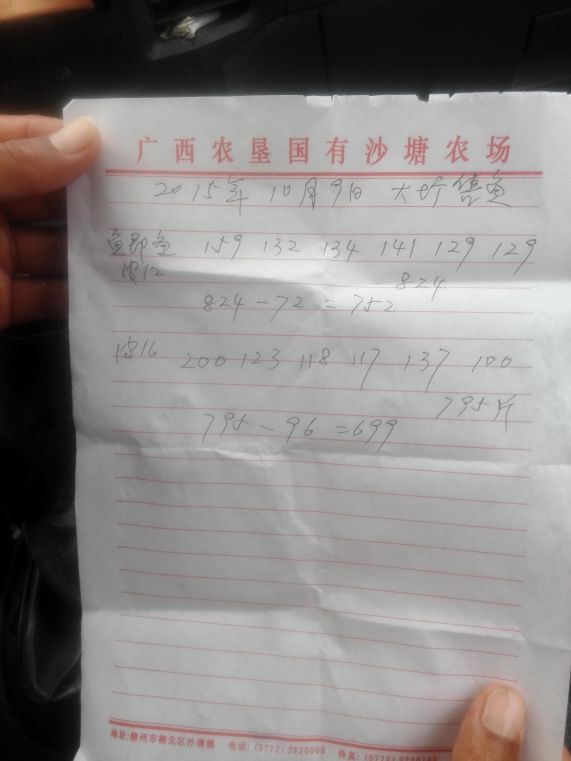 广西农垦国有沙塘农场
2015年 10月9日 大圩售鱼
鱼郎鱼 159 132 134 141 129 129
皮12 824
824-72=752
皮16 200 123 118 117 137 100
795斤
795-96=699
地址:柳州市柳北区沙塘镇 电话:(0772)2720008 传真:(0772)